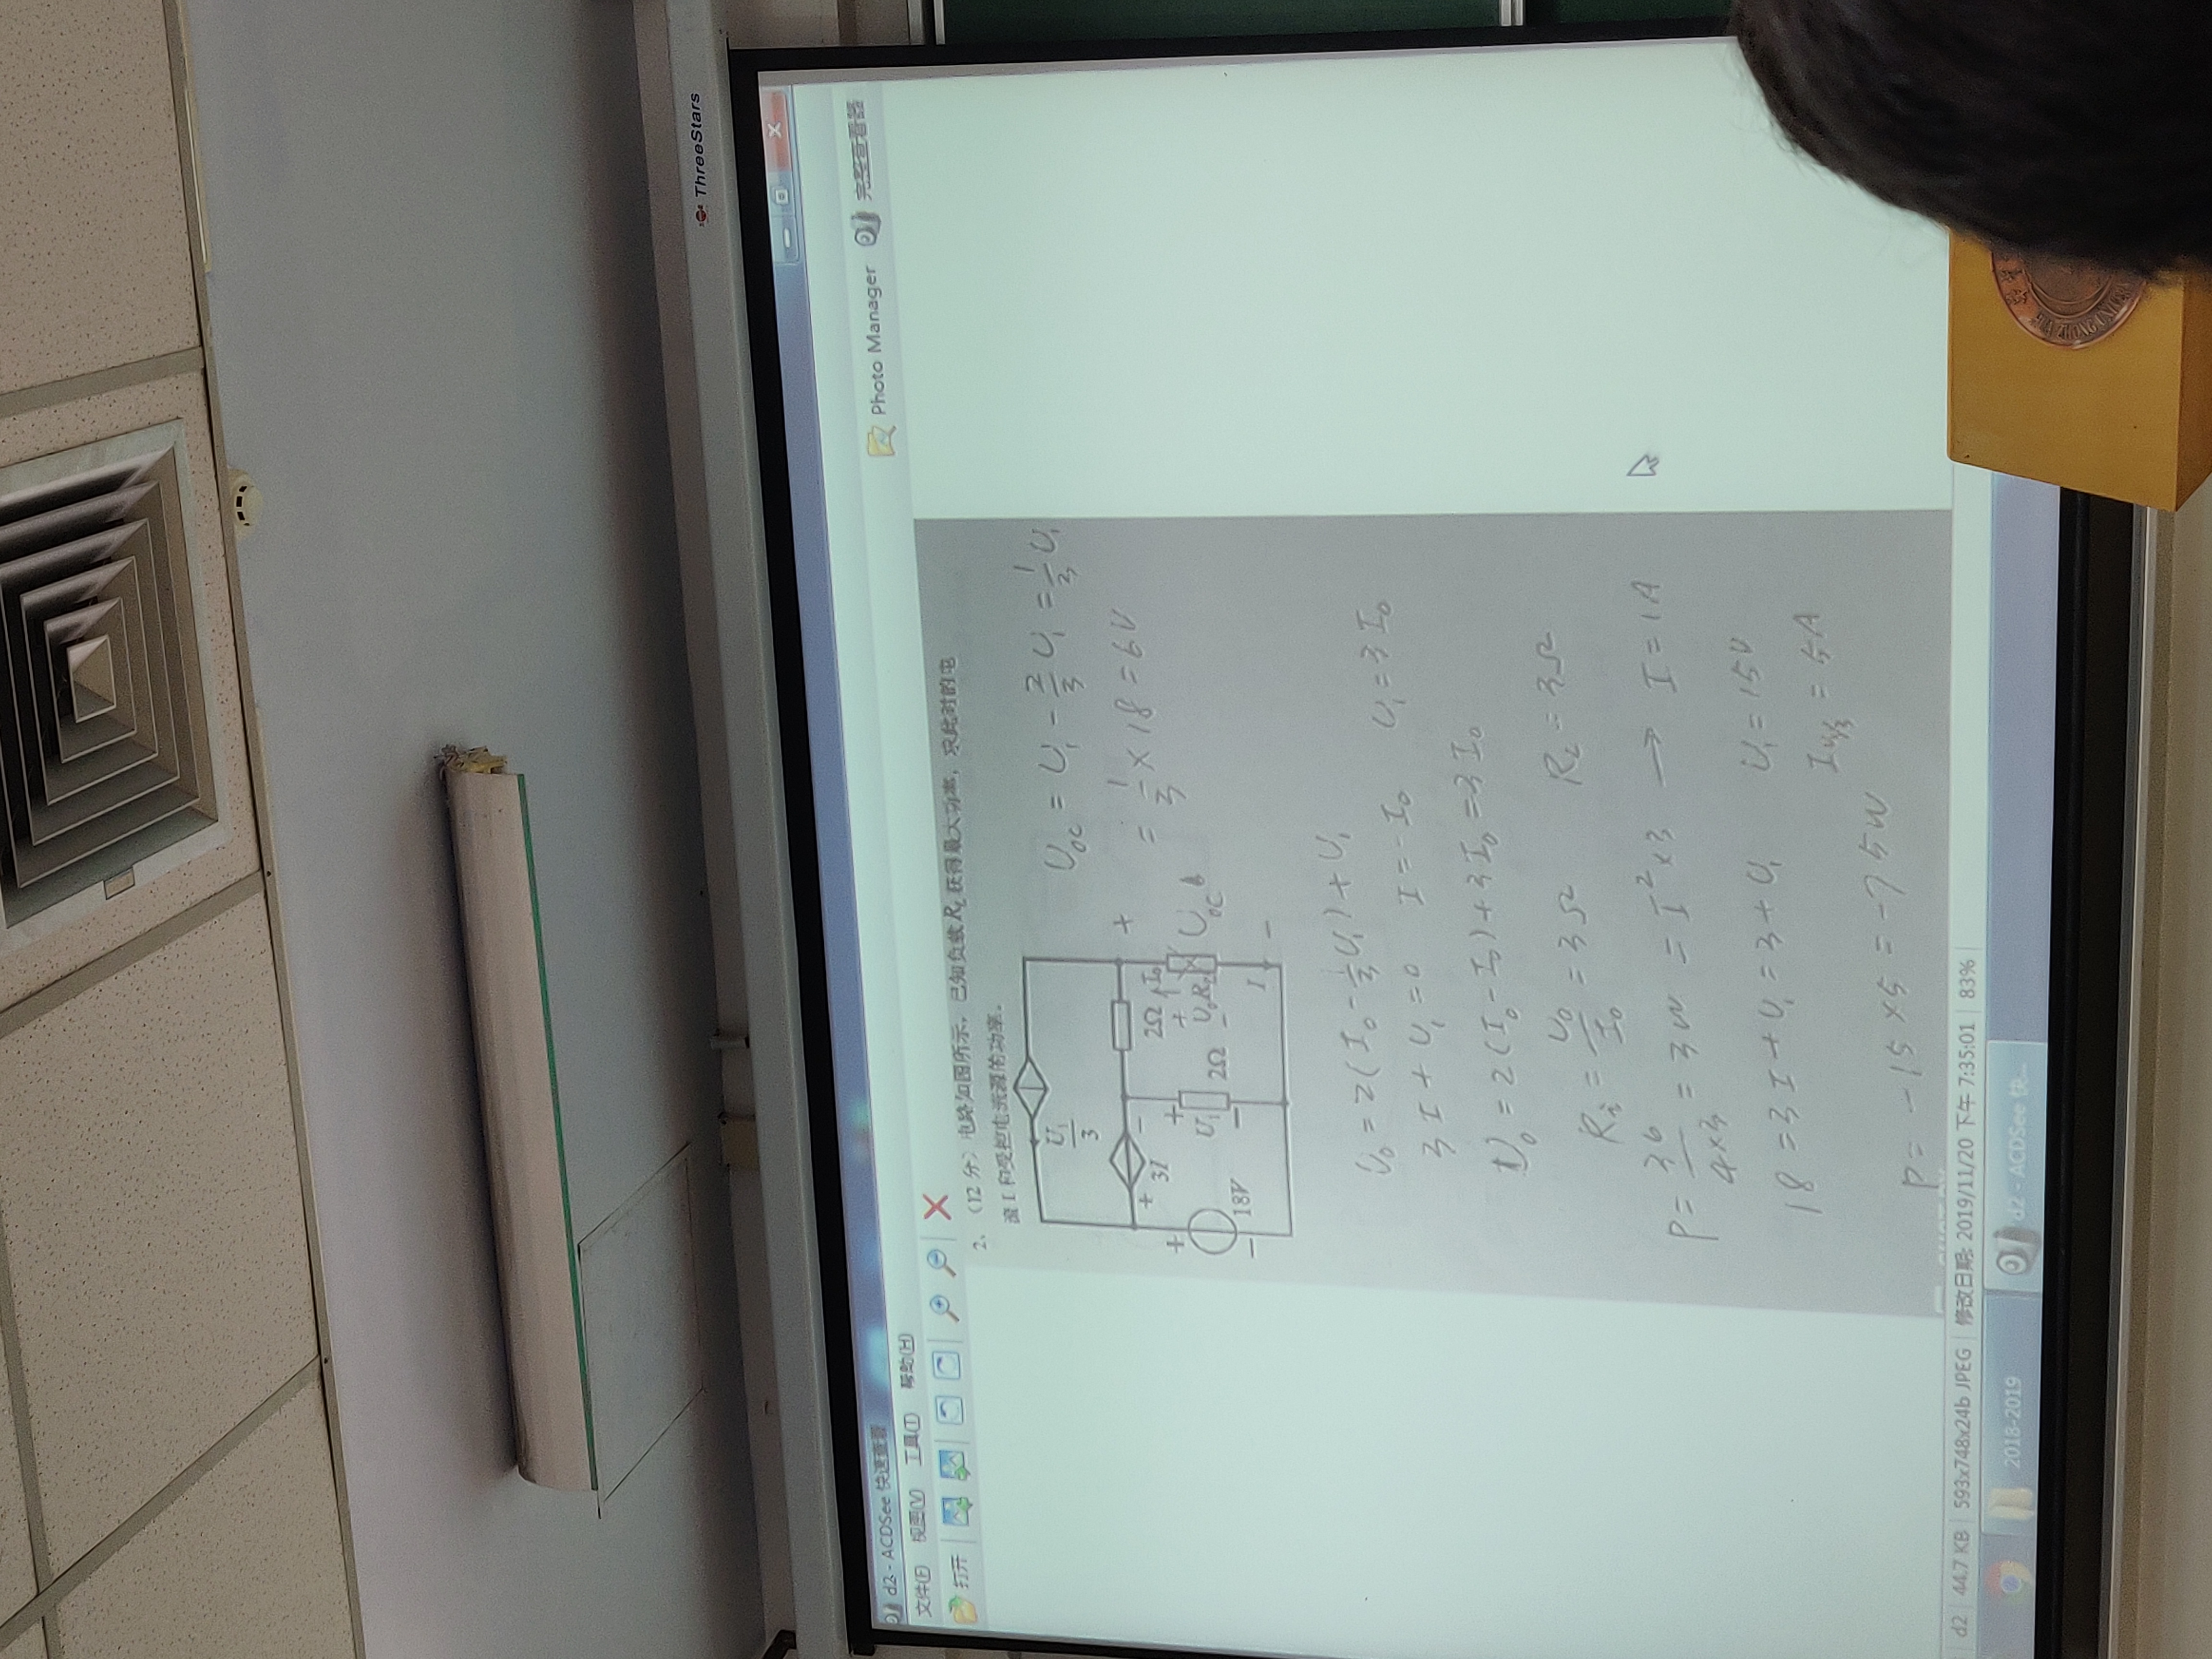 ThreeStars
d2 - ACDSee 快速查看
文件(F) 视图(V) 工具(T) 帮助(H)
Photo Manager 完整查看器
打开
2、（12 分）电路如图所示，已知负载 R_L 获得最大功率，求此时的电
流 I 和受控电流源的功率。
U₁/3
+ 3I −
2Ω I₀ +
+ 18V −
+ U₁ − 2Ω
+ U₀ − R_L U_OC
I −
U_OC = U₁ − 2/3 U₁ = 1/3 U₁
= 1/3 × 18 = 6V
U₀ = 2(I₀ − 1/3 U₁) + U₁
3I + U₁ = 0 I = −I₀ U₁ = 3I₀
U₀ = 2(I₀ − I₀) + 3I₀ = 3I₀
R_i = U₀/I₀ = 3Ω R_L = 3Ω
P = 36/(4×3) = 3W = I² × 3 → I = 1A
18 = 3I + U₁ = 3 + U₁ U₁ = 15V
I_U₁/3 = 5A
P = −15 × 5 = −75W
d2 44.7 KB 593x748x24b JPEG 修改日期: 2019/11/20 下午 7:35:01 83%
2018-2019 d2 - ACDSee 快...